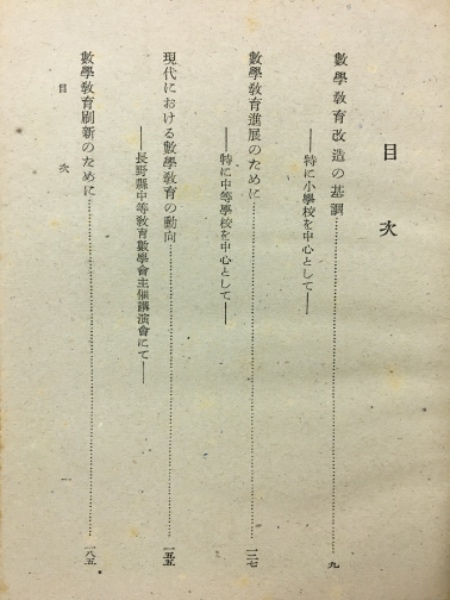 目次
數學敎育改造の基調……九
――特に小學校を中心として――
數學敎育進展のために……一二七
――特に中等學校を中心として――
現代における數學敎育の動向……一五五
――長野縣中等敎育數學會主催講演會にて――
數學敎育刷新のために……一八五
目次 一